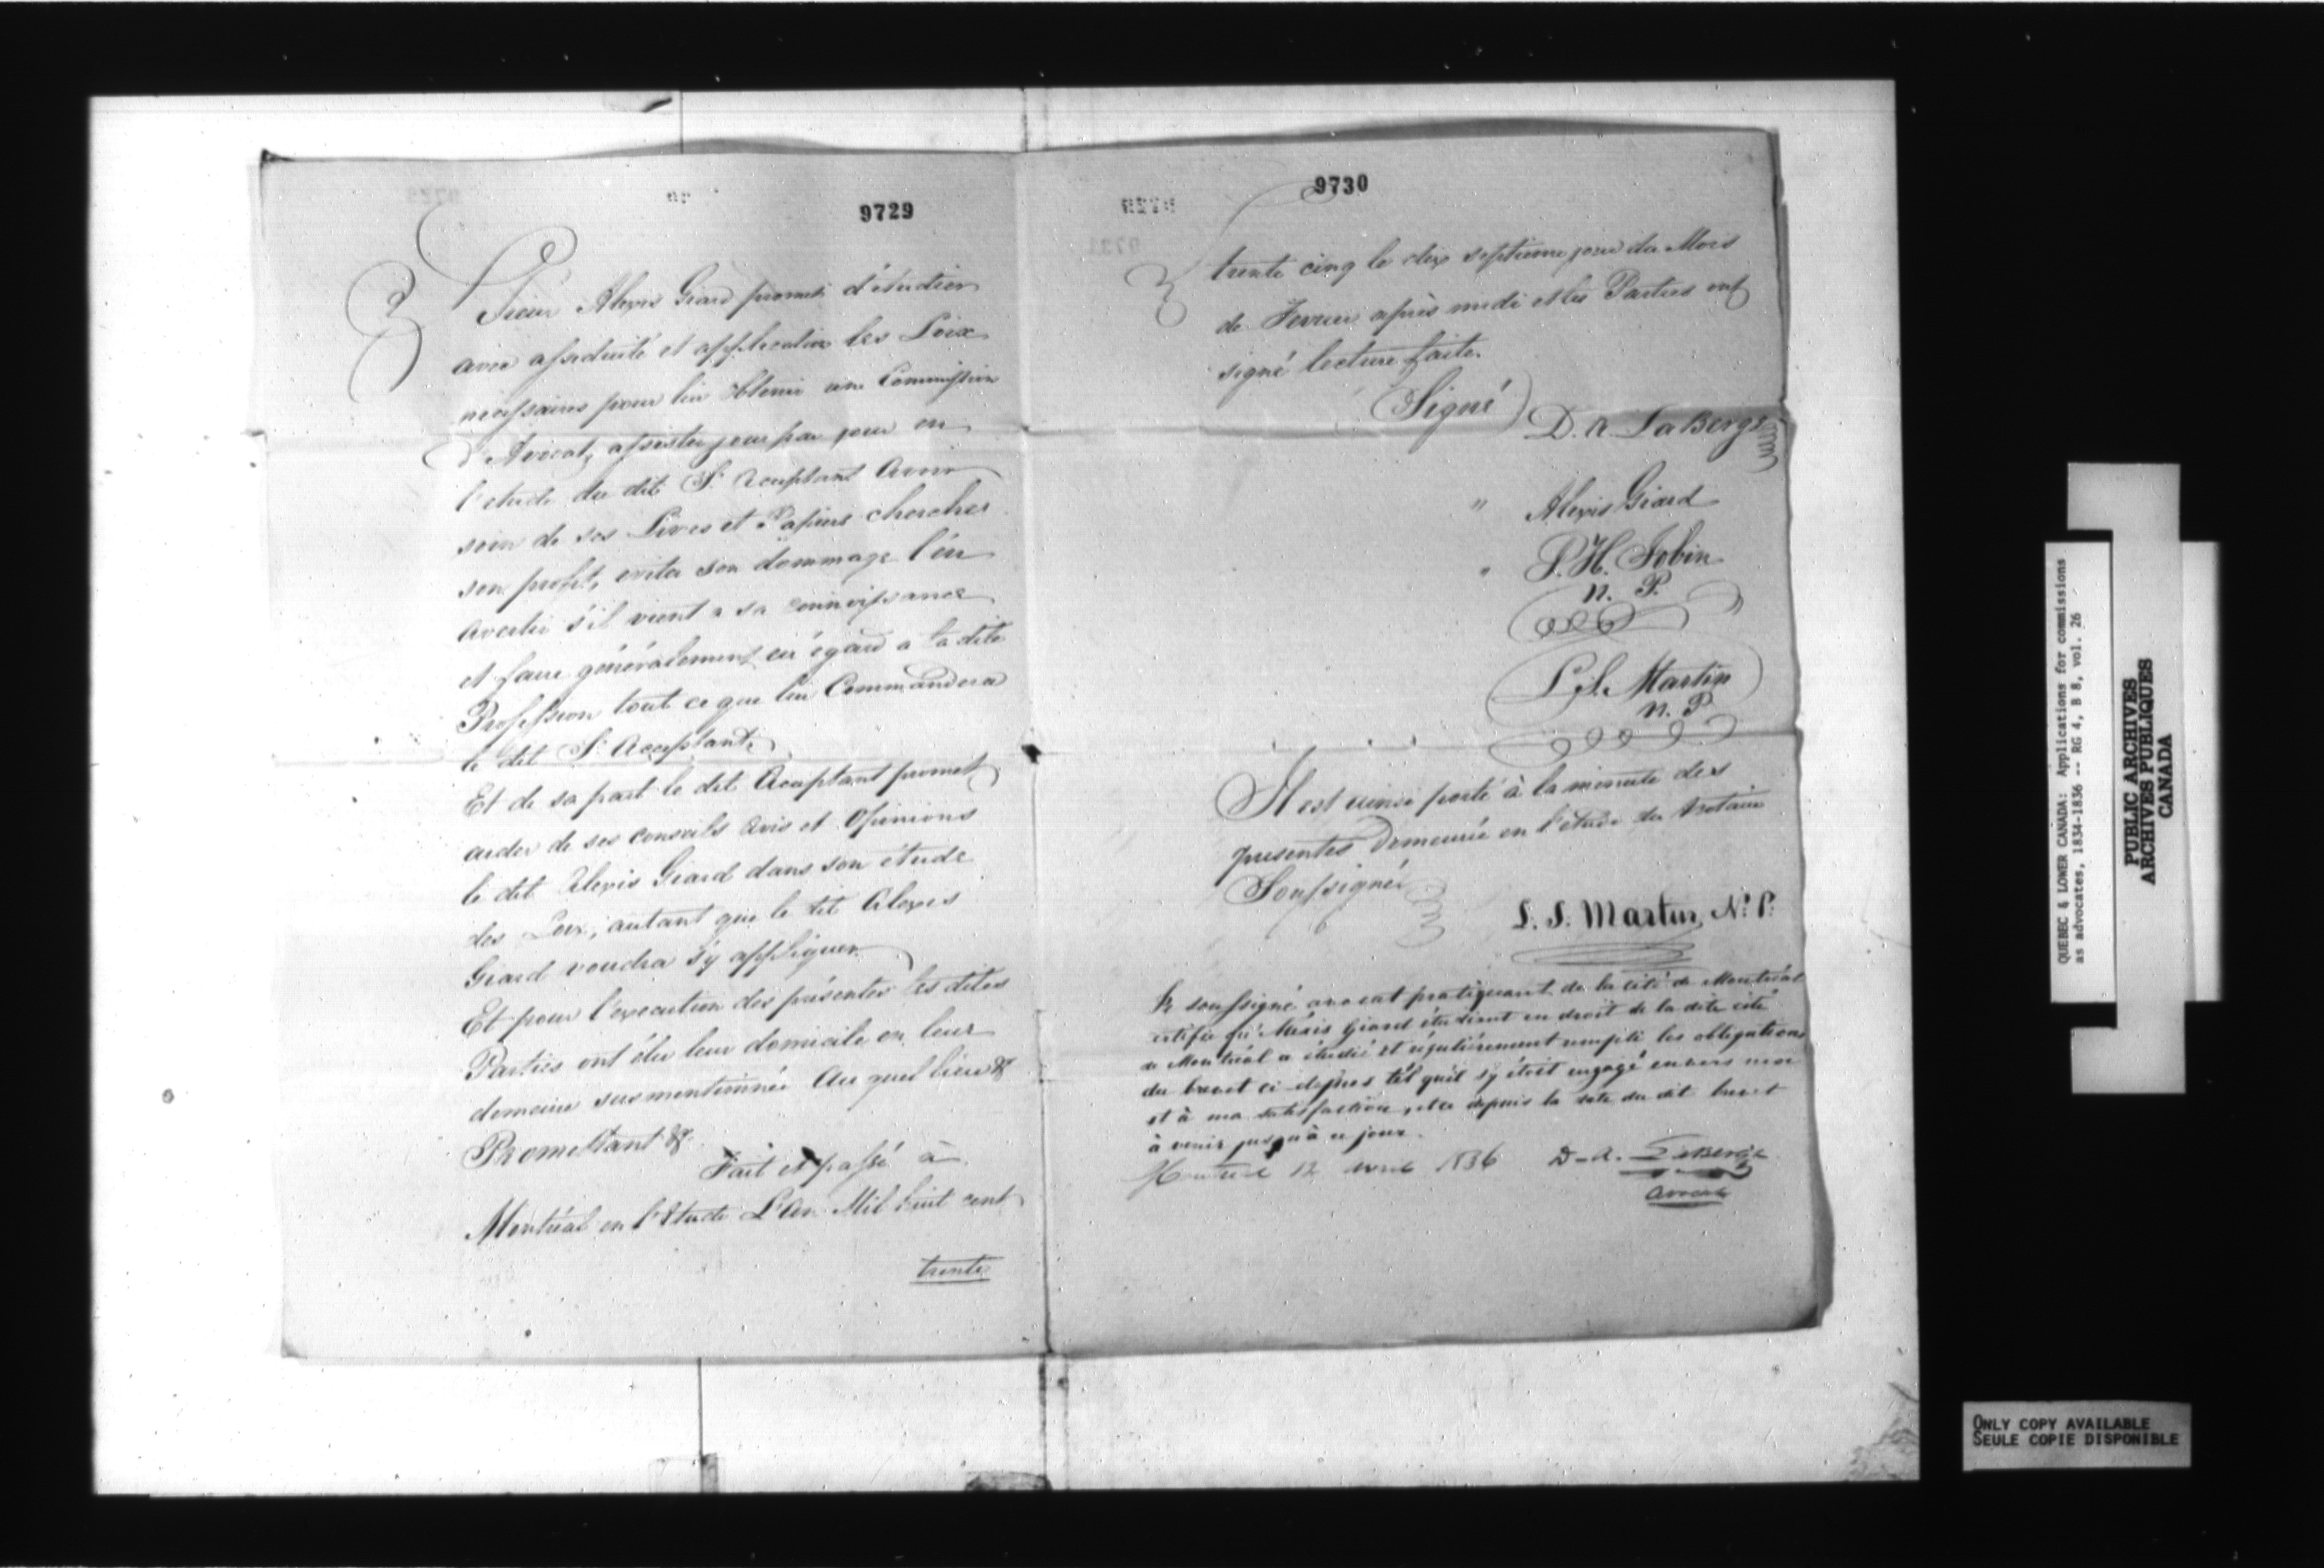 9729
Sieur Alexis Giard promet d'étudier
avec assiduité et application les Loix
nécessaires pour lui obtenir une Commission
d'Avocat, assister jour par jour en
l'etude du dit Sr. Acceptant Avoir
soin de ses Livres et Papiers chercher
son profit, eviter son dommage l'en
avertir s'il vient a sa connoissance
et faire généralement eu égard a la dite
Profession tout ce que lui Commandera
le dit Sr. Acceptant.
Et de sa part le dit Acceptant promet
aider de ses conseils avis et Opinions
le dit Alexis Giard dans son étude
des Loix, autant que le dit Alexis
Giard voudra s'y appliquer.
Et pour l'execution des présentes les dites
Parties ont élu leur domicile en leur
demeure susmentionnée Au quel lieu &c
Promettant &c.
Fait et passé à
Montréal en l'Etude L'An Mil huit cent
trente
9730
trente cinq le dix septieme jour du Mois
de Fevrier après midi et les Parties ont
signé lecture faite.
(Signé) D. A. LaBerge
" Alexis Giard
" P. H. Jobin
N. P.
L. S. Martin
N. P.
Il est ainsi porté à la minute des
presentes demeurée en l'étude du Notaire
Soussigné
L. S. Martin, N. P.
Le soussigné avocat pratiquant de la cité de Montréal
certifie qu'Alexis Giard étudiant en droit de la dite cité
de Montréal a étudié et régulièrement rempli les obligations
du brevet ci-dessus tel qu'il s'y étoit engagé envers moi
et à ma satisfaction, et ce depuis la date du dit brevet
à venir jusqu'à ce jour.
Montréal 12 Avril 1836 D-A. LaBerge
avocat
QUEBEC & LOWER CANADA: Applications for commissions
as advocates, 1834-1836 -- RG 4, B 8, vol. 26
PUBLIC ARCHIVES
ARCHIVES PUBLIQUES
CANADA
ONLY COPY AVAILABLE
SEULE COPIE DISPONIBLE